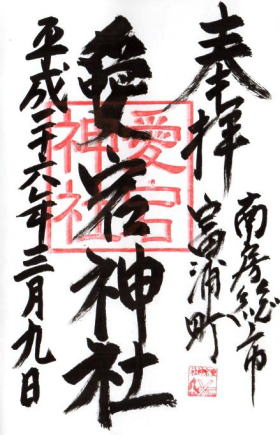 奉拝
南房総市
富浦町
愛宕神社
愛宕
神社
平成二十六年三月九日